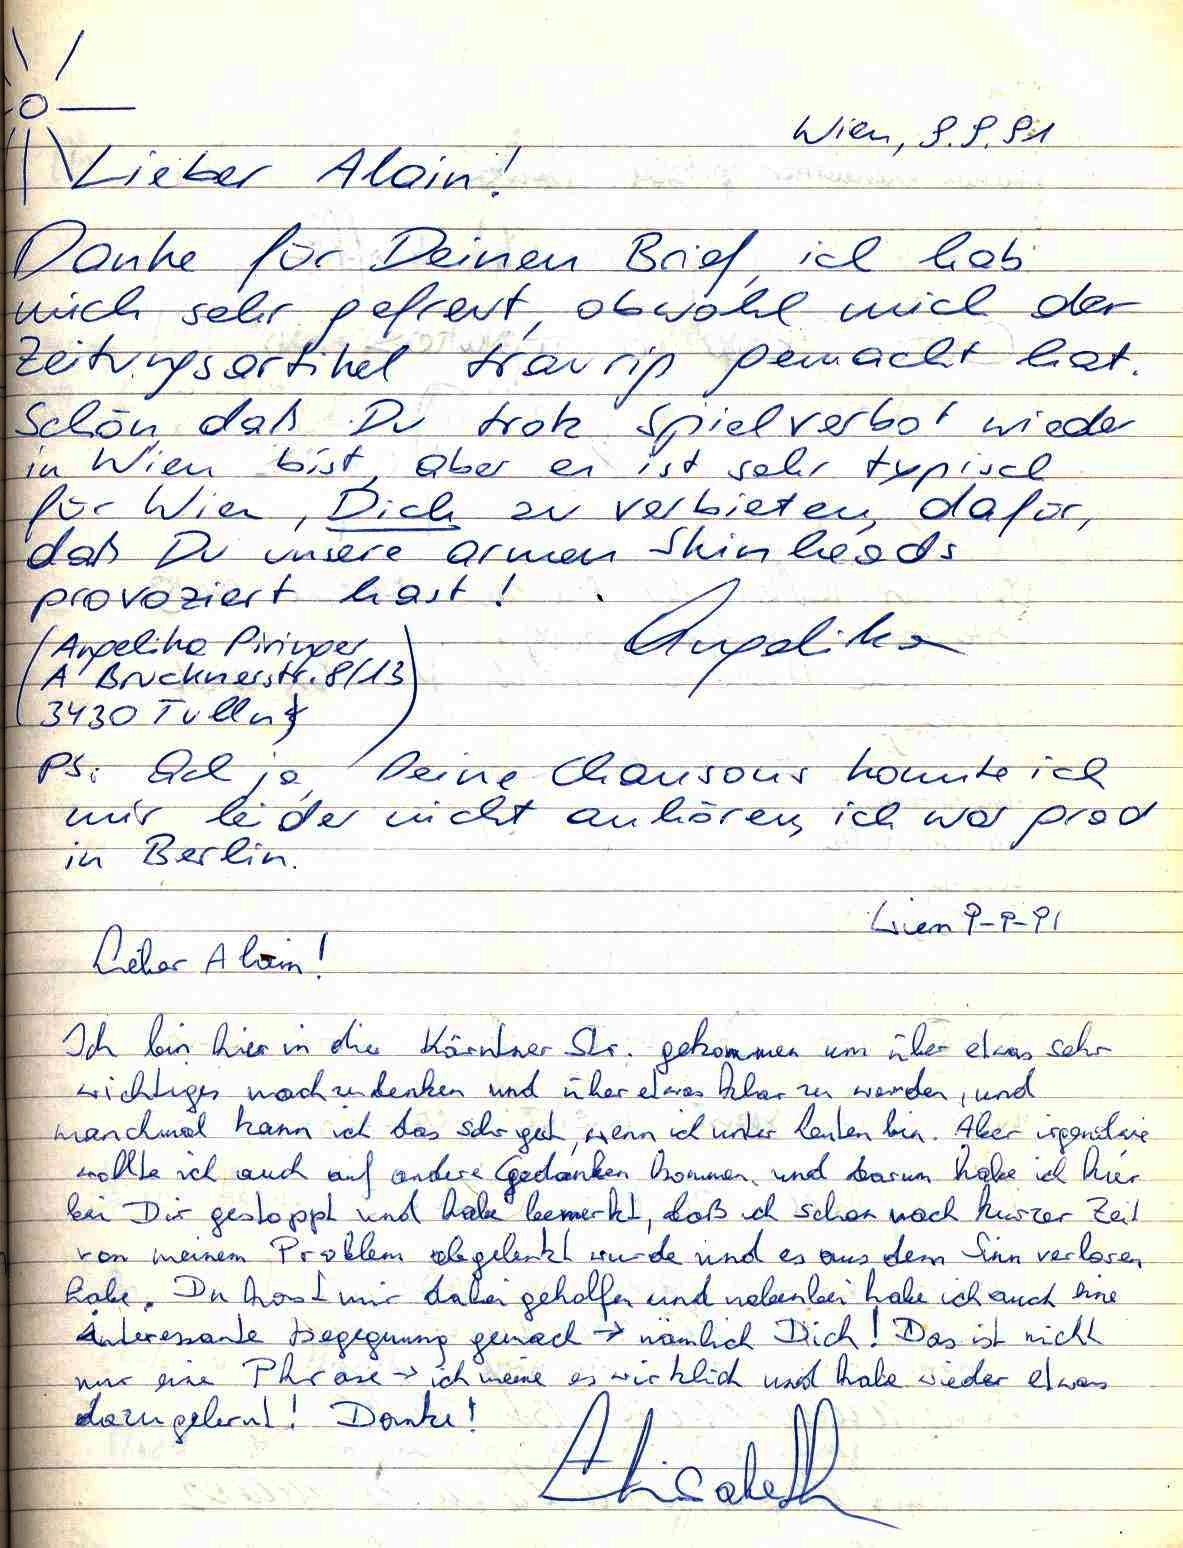 Wien, 9.9.91
Lieber Alain!
Danke für Deinen Brief, ich hab
mich sehr gefreut, obwohl mich der
Zeitungsartikel traurig gemacht hat.
Schön, daß Du trotz Spielverbot wieder
in Wien bist, aber es ist sehr typisch
für Wien, Dich zu verbieten, dafür,
daß Du unsere armen Skinheads
provoziert hast!
Angelika
(Angelika Piringer
A Brucknerstr. 8/13
3430 Tulln)
PS: Ach ja, Deine Chansons konnte ich
mir leider nicht anhören, ich war grad
in Berlin.
Wien 9-9-91
Lieber Alain!
Ich bin hier in die Kärntner Str. gekommen um über etwas sehr
wichtiges nachzudenken und über etwas klar zu werden, und
manchmal kann ich das sehr gut, wenn ich unter Leuten bin. Aber irgendwie
wollte ich auch auf andere Gedanken kommen, und darum habe ich hier
bei Dir gestoppt und habe bemerkt, daß ich schon nach kurzer Zeit
von meinem Problem abgelenkt wurde und es aus dem Sinn verloren
habe. Du hast mir dabei geholfen und nebenbei habe ich auch eine
interessante Begegnung gemach → nämlich Dich! Das ist nicht
nur eine Phrase → ich meine es wirklich und habe wieder etwas
dazugelernt! Danke!
Elisabeth